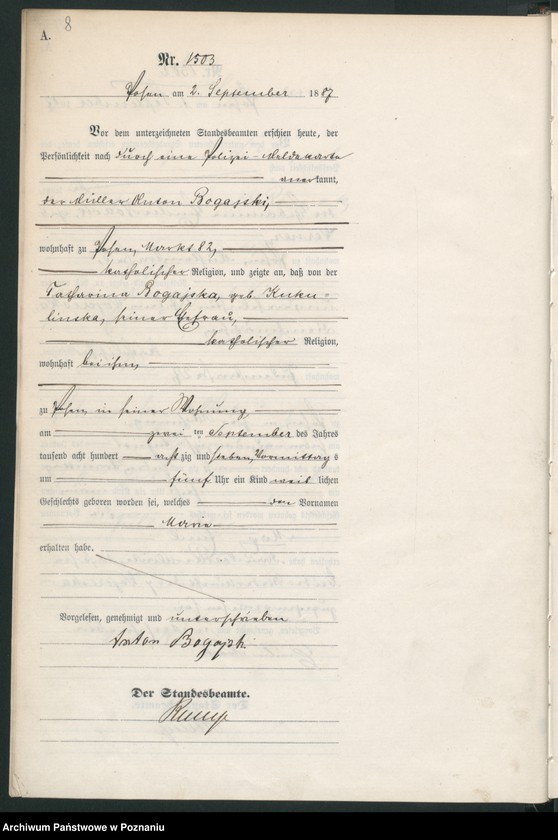 A.
8
Nr. 1503
Posen am 2. September 1887
Vor dem unterzeichneten Standesbeamten erschien heute, der
Persönlichkeit nach durch eine Polizei-Meldekarte
anerkannt,
der Müller Anton Bogajski,
wohnhaft zu Posen, Markt 82,
katholischer Religion, und zeigte an, daß von der
Catharina Bogajska, geb. Kuku-
linska, seiner Ehefrau,
katholischer Religion,
wohnhaft bei ihm,
zu Posen, in seiner Wohnung
am zwei ten September des Jahres
tausend acht hundert acht zig und sieben, Vormittag s
um fünf Uhr ein Kind weib lichen
Geschlechts geboren worden sei, welches den Vornamen
Maria
erhalten habe.
Vorgelesen, genehmigt und unterschrieben
Anton Bogajski
Der Standesbeamte.
Archiwum Państwowe w Poznaniu